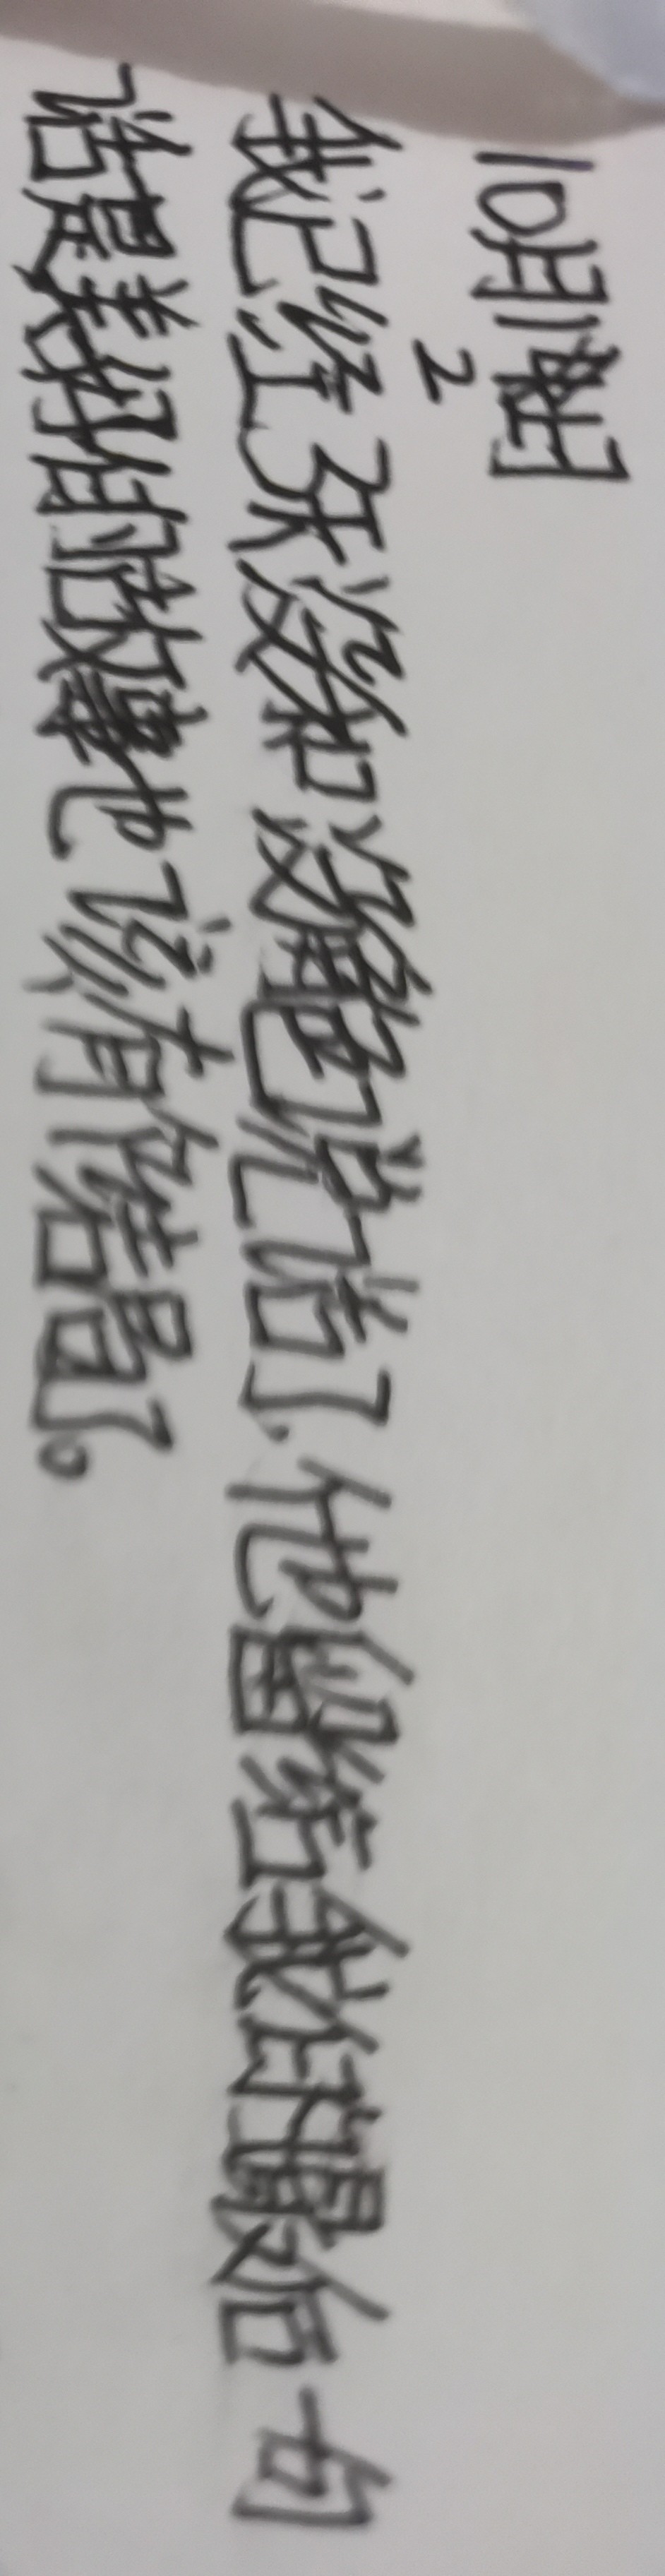 10月12日
我已经3天没和没角色说话了,他留给我的最后一句
话是美好的故事也该有个结局了。